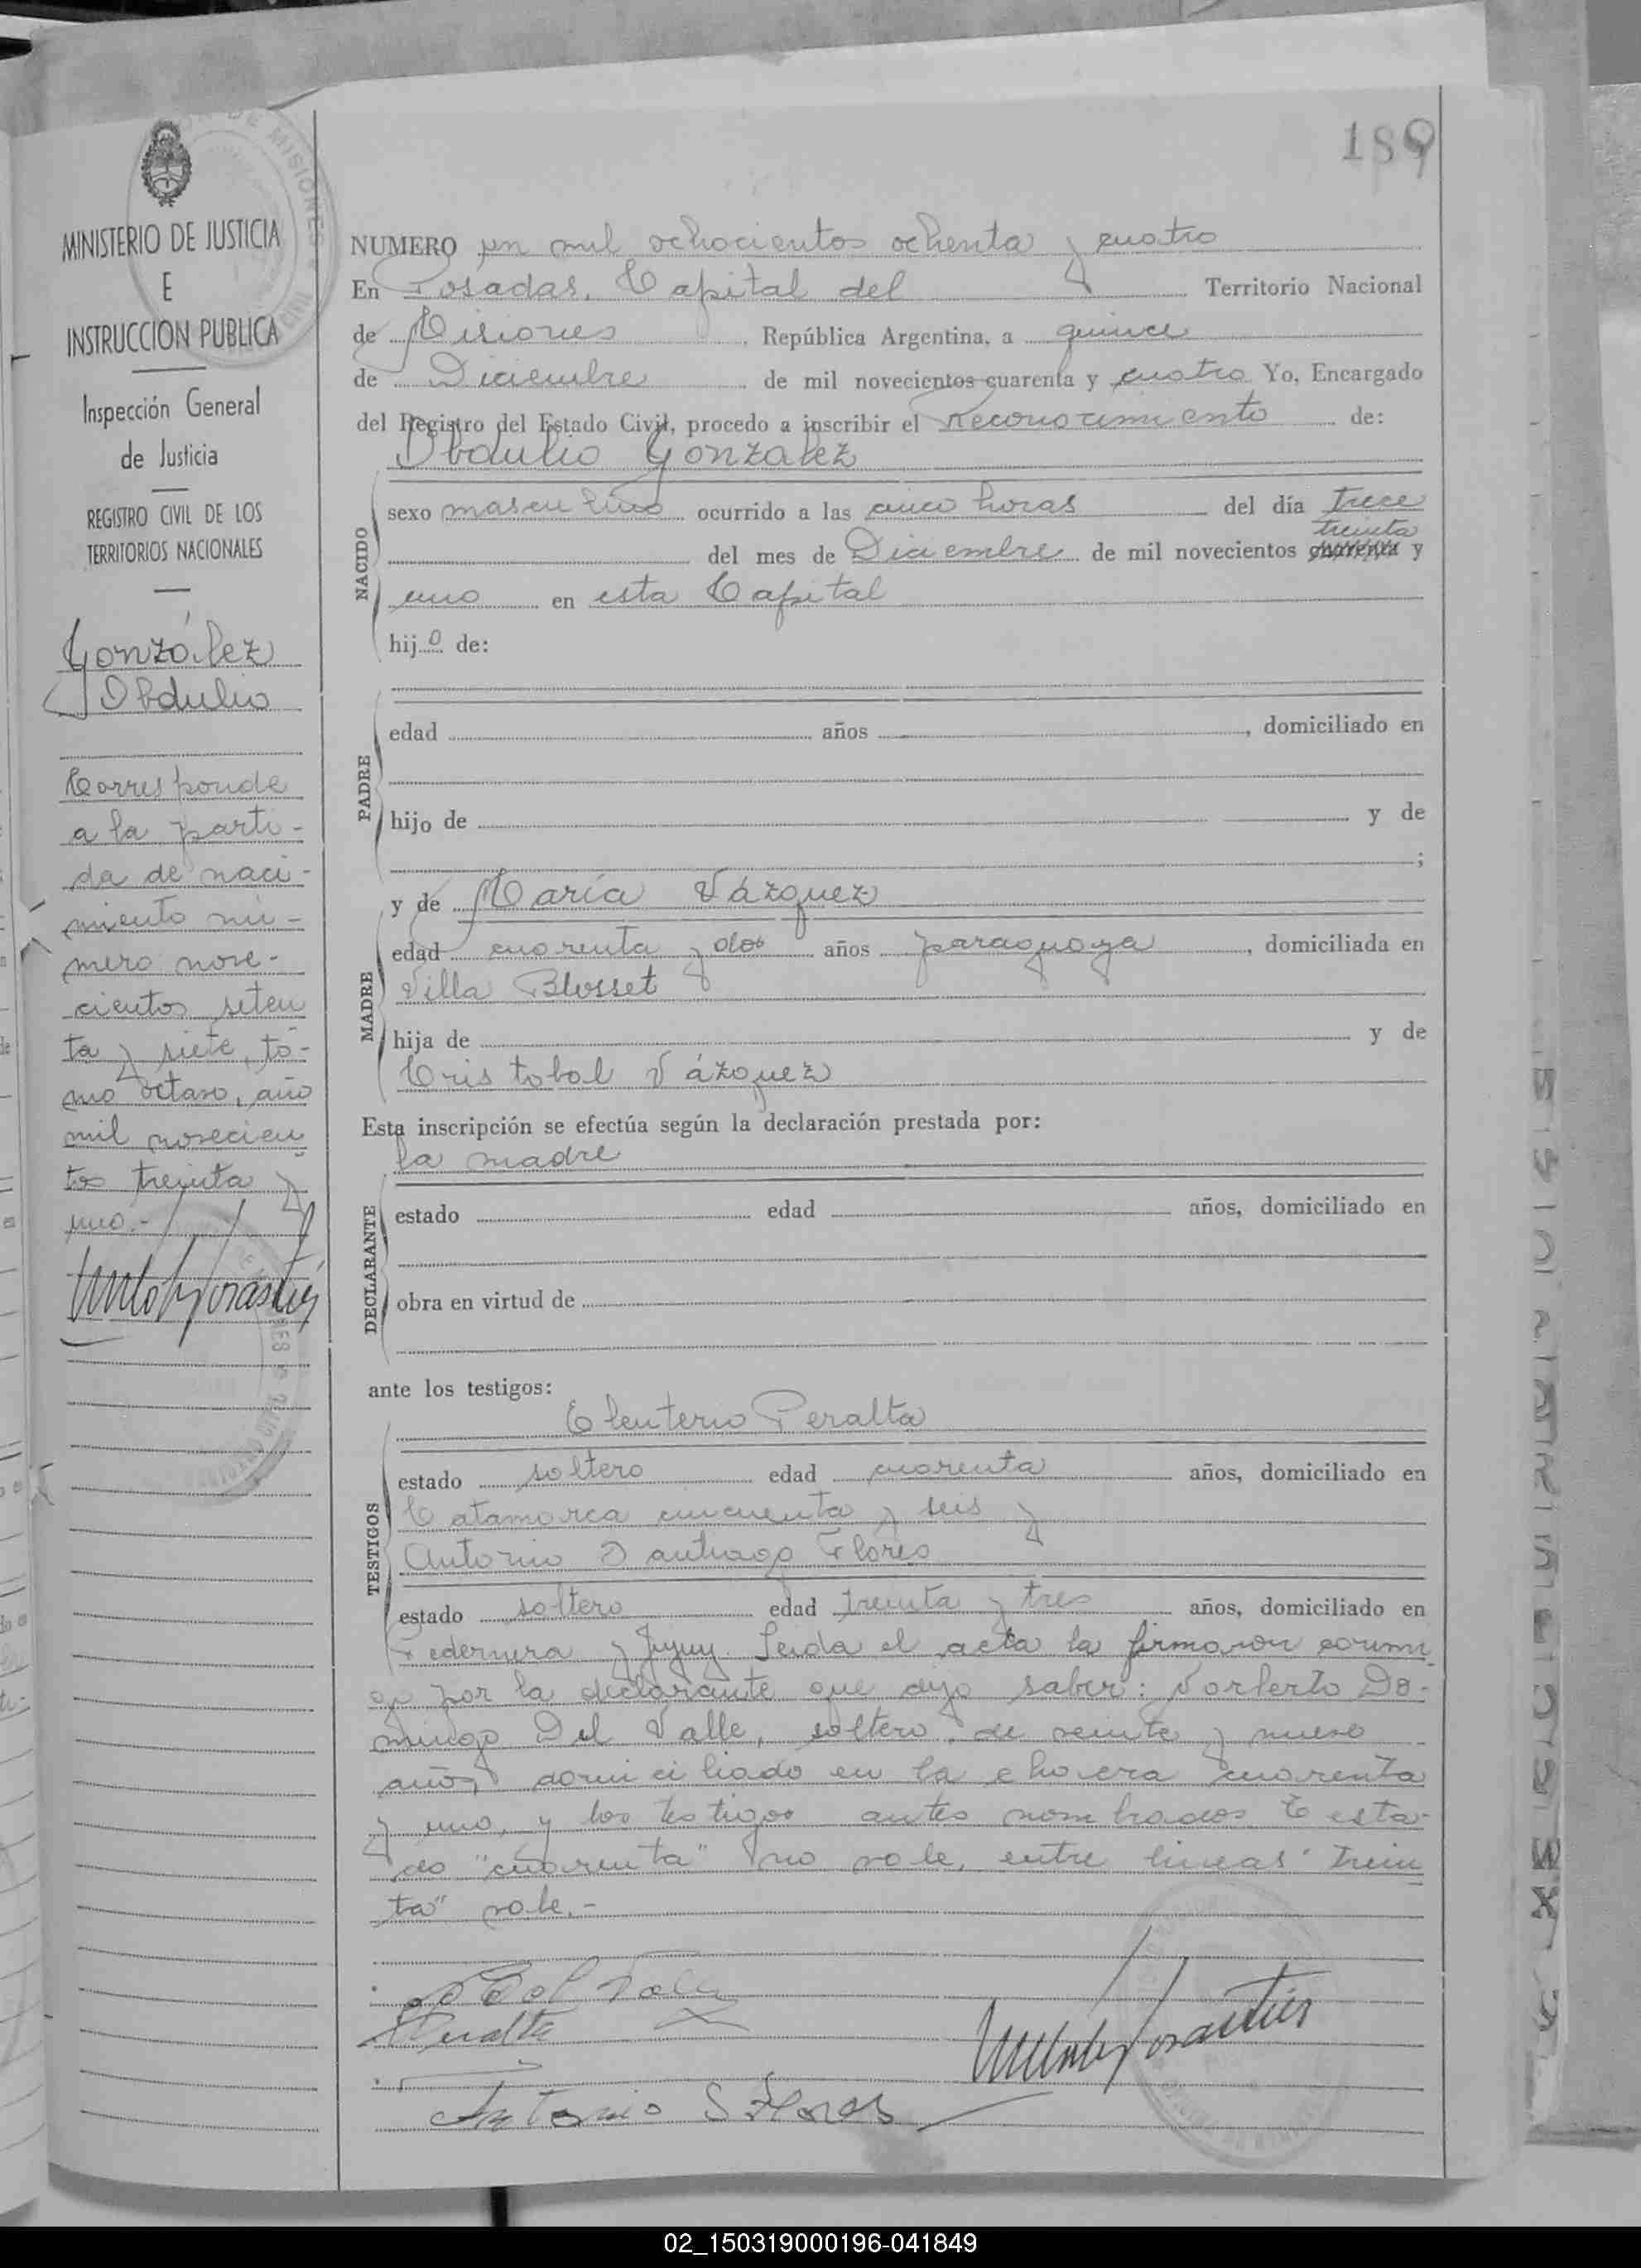 189
MINISTERIO DE JUSTICIA
E
INSTRUCCION PUBLICA
Inspección General
de Justicia
REGISTRO CIVIL DE LOS
TERRITORIOS NACIONALES
González
Obdulio
Corresponde
a la parti-
da de naci-
miento nú-
mero nove-
cientos seten
ta y siete, to-
mo octavo, año
mil novecien
tos treinta y
uno.-
NUMERO un mil ochocientos ochenta y cuatro
En Posadas, Capital del Territorio Nacional
de Misiones, República Argentina, a quince
de Diciembre de mil novecientos cuarenta y cuatro Yo, Encargado
del Registro del Estado Civil, procedo a inscribir el Reconocimiento de:
Obdulio Gonzalez
NACIDO
sexo masculino ocurrido a las cinco horas del día trece
treinta
del mes de Diciembre de mil novecientos cuarenta y
uno en esta Capital
hijo de:
PADRE
edad años , domiciliado en
hijo de y de
;
y de María Vázquez
MADRE
edad cuarenta y dos años paraguaya, domiciliada en
Villa Blosset
hija de y de
Cristobal Vázquez
Esta inscripción se efectúa según la declaración prestada por:
la madre
DECLARANTE
estado edad años, domiciliado en
obra en virtud de
ante los testigos:
Eleuterio Peralta
TESTIGOS
estado soltero edad cuarenta años, domiciliado en
Catamarca cincuenta y seis y
Antonio Santiago Flores
estado soltero edad treinta y tres años, domiciliado en
Pedernera y Jujuy. Leida el acta la firmaron conmi
go por la declarante que dijo saber: Norberto Do-
mingo Del Valle, soltero, de veinte y nueve
años, domiciliado en la chacra cuarenta
y uno, y los testigos antes nombrados. Testa-
do "cuarenta" no vale, entre lineas "trein
ta" vale.-
Del Valle
Peralta
Antonio S Flores
02_150319000196-041849